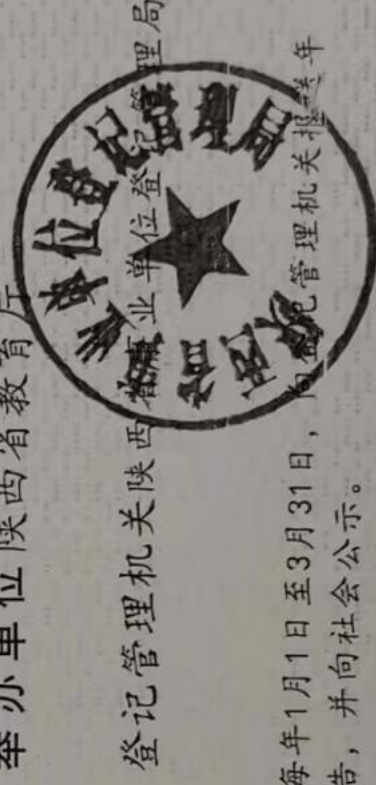 举办单位 陕西省教育厅
登记管理机关 陕西省事业单位登记管理局
每年1月1日至3月31日，向登记管理机关报送年
告，并向社会公示。
单位登记管理局